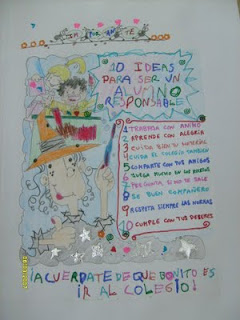 IMPORTANTE
10 IDEAS
PARA SER UN
ALUMNO
RESPONSABLE
1 TRABAJA CON ANIMO
2 APRENDE CON ALEGRÍA
3 CUIDA BIEN TU MATERIAL
4 CUIDA EL COLEGIO TAMBIEN
5 COMPARTE CON TUS AMIGOS
6 JUEGA MUCHO EN LOS
7 PREGUNTA SI NO TE SALE
8 SE BUEN COMPAÑERO
9 RESPETA SIEMPRE LAS NORMAS
10 CUMPLE CON TUS DEBERES
¡ACUERDATE DE QUE BONITO ES
IR AL COLEGIO!